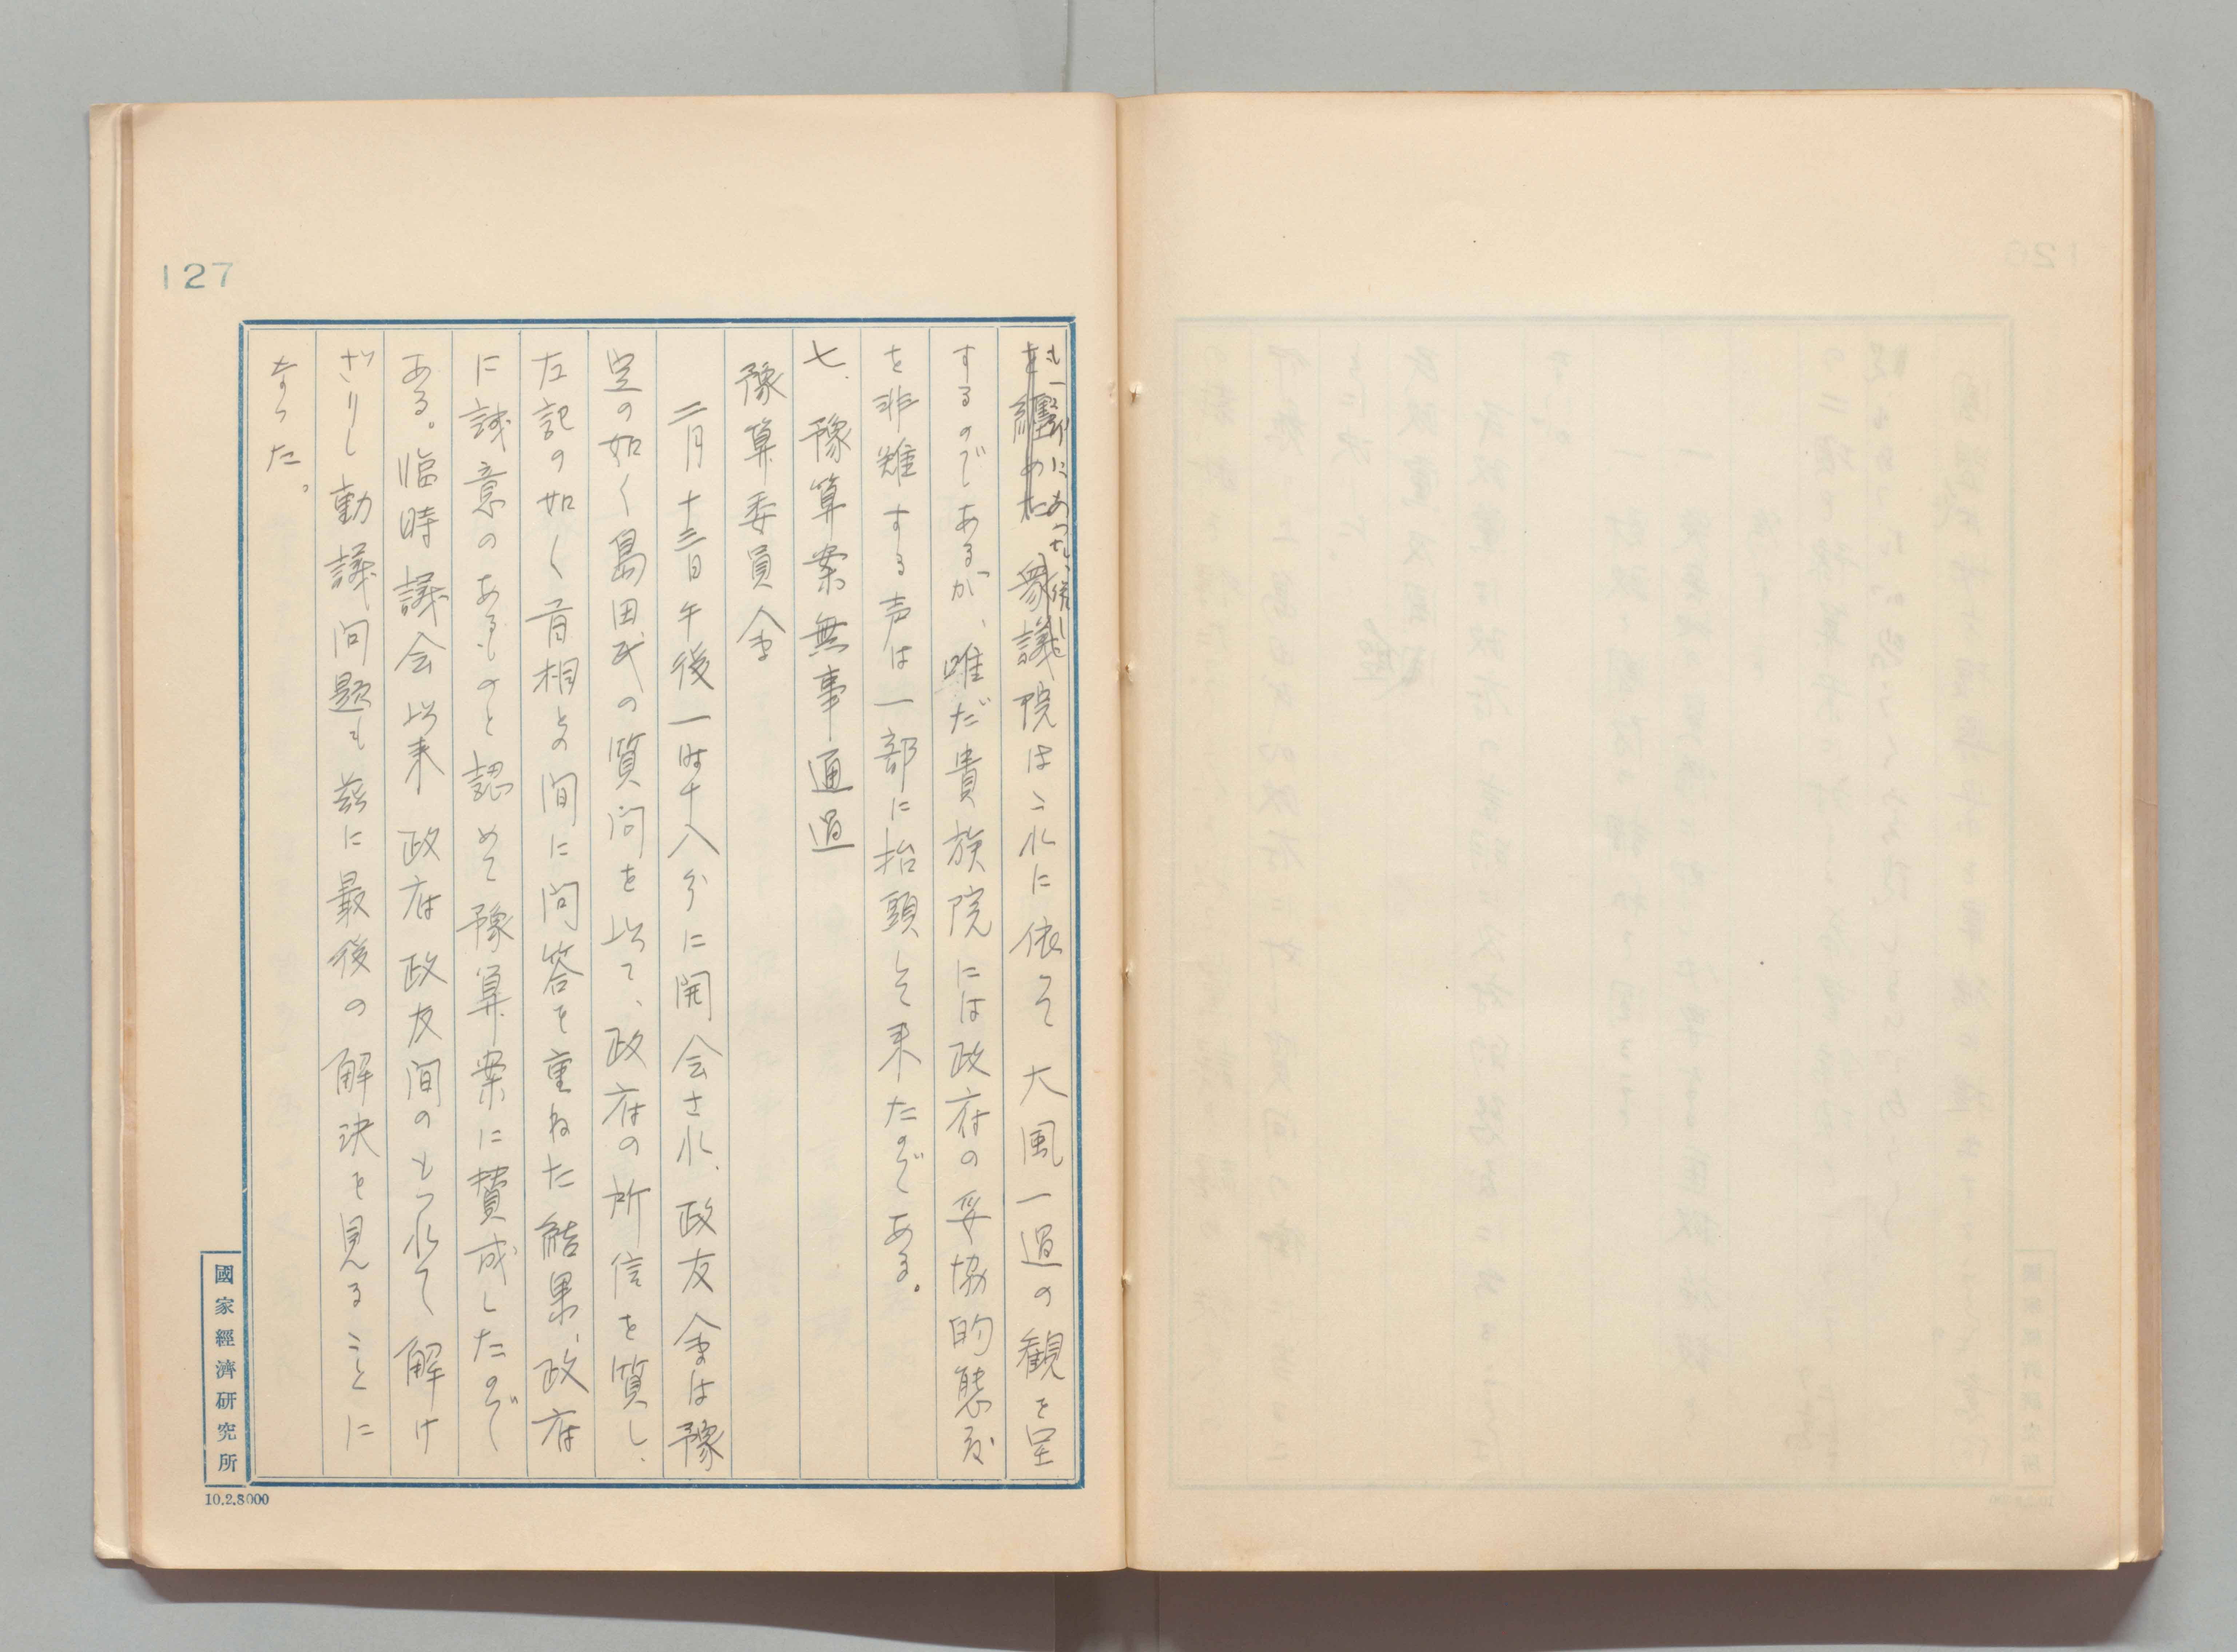 127
を纏めた衆議院はこれに依つて大風一過の観を呈
するのであるが、唯だ貴族院には政府の妥協的態度
を非難する声は一部に抬頭して来たのである。
七、豫算案無事通過
豫算委員会
二月十三日午後一時十八分に開会され、政友会は豫
定の如く島田氏の質問を以て、政府の所信を質し、
左記の如く首相との間に問答を重ねた結果、政府
に誠意のあるものと認めて豫算案に賛成したので
ある。臨時議会以来政府政友間のもつれて解け
ざりし動議問題も茲に最後の解決を見ることに
なつた。
國家經濟研究所
10.2.8000